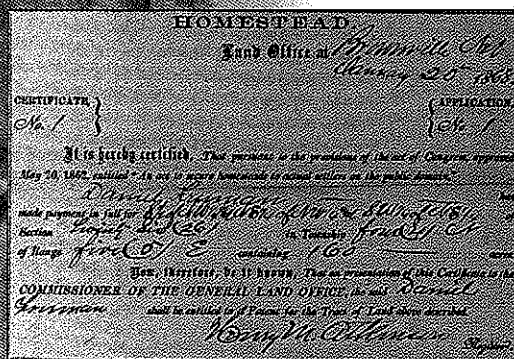 HOMESTEAD.
Land Office at Brownville Neb
January 20th 1868.
CERTIFICATE, No. 1 } { APPLICATION, No. 1
It is hereby certified, That pursuant to the provisions of the act of Congress, approved
May 20, 1862, entitled "An act to secure homesteads to actual settlers on the public domain,"
Daniel Freeman has
made payment in full for of
Section in Township four (4) N
of Range five (5) E containing 160 acres.
Now, therefore, be it known, That on presentation of this Certificate to the
COMMISSIONER OF THE GENERAL LAND OFFICE, the said Daniel
Freeman shall be entitled to a Patent for the Tract of Land above described.
Henry M. Atkinson
Register.